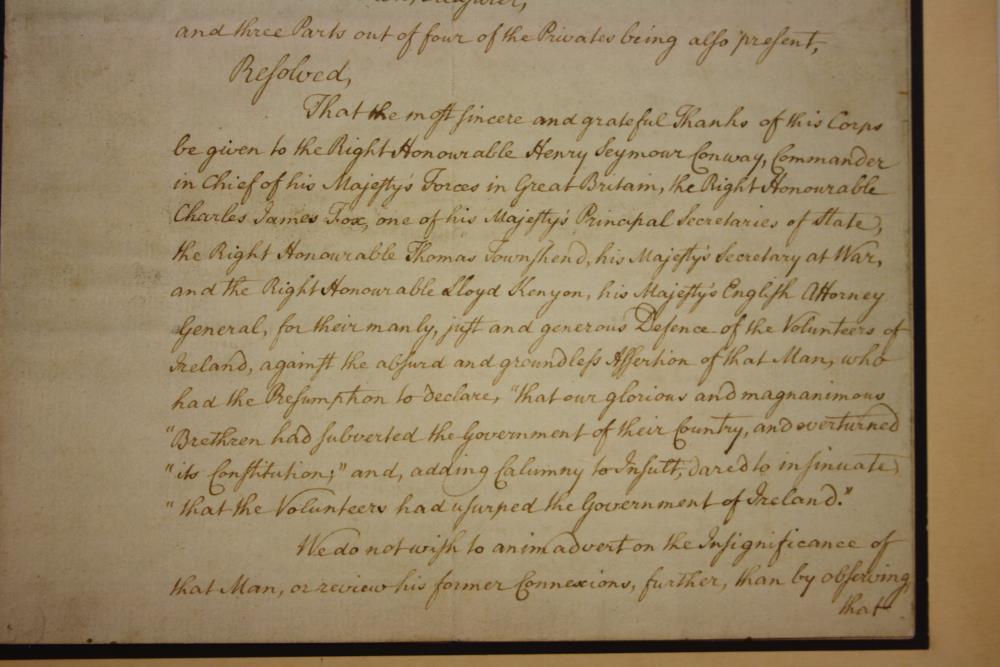 and three Parts out of four of the Privates being also present,
Resolved,
That the most sincere and grateful Thanks of this Corps
be given to the Right Honourable Henry Seymour Conway, Commander
in Chief of his Majesty's Forces in Great Britain, the Right Honourable
Charles James Fox, one of his Majesty's Principal Secretaries of State,
the Right Honourable Thomas Townshend, his Majesty's Secretary at War,
and the Right Honourable Lloyd Kenyon, his Majesty's English Attorney
General, for their manly, just and generous Defence of the Volunteers of
Ireland, against the absurd and groundless Assertion of that Man, who
had the Presumption to declare, "that our glorious and magnanimous
"Brethren had subverted the Government of their Country, and overturned
"its Constitution;" and, adding Calumny to Insult, dared to insinuate
"that the Volunteers had usurped the Government of Ireland."
We do not wish to animadvert on the Insignificance of
that Man, or review his former Connexions, further, than by observing
that